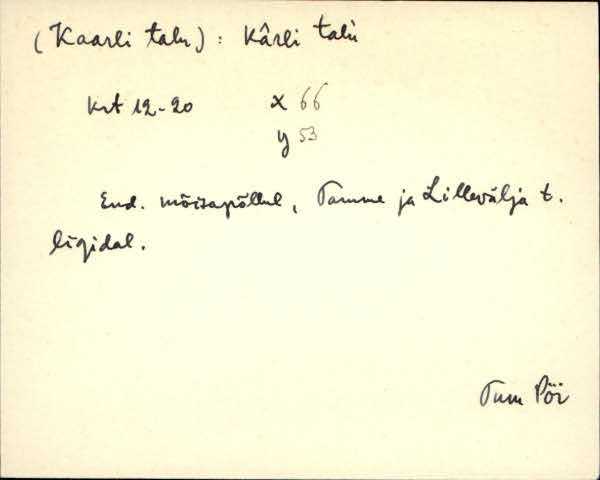 (Kaarli talu): kârli talù
krt 12-20 x 66
y 53
End. mõisapõllul, Tamme ja Lillevälja t.
ligidal.
Tum Pöi